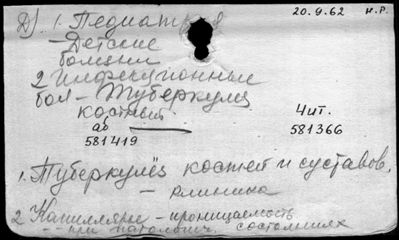 Д). 1. Педиатрия 20.9.62 н.р.
- Детские
болезни
2 Инфекционные
бол - Туберкулез
костный Чит.
аб 581366
581419
1. Туберкулёз костей и суставов.
- клиника
2 Капиллярн - проницаемость
-- при патологич. состояниях